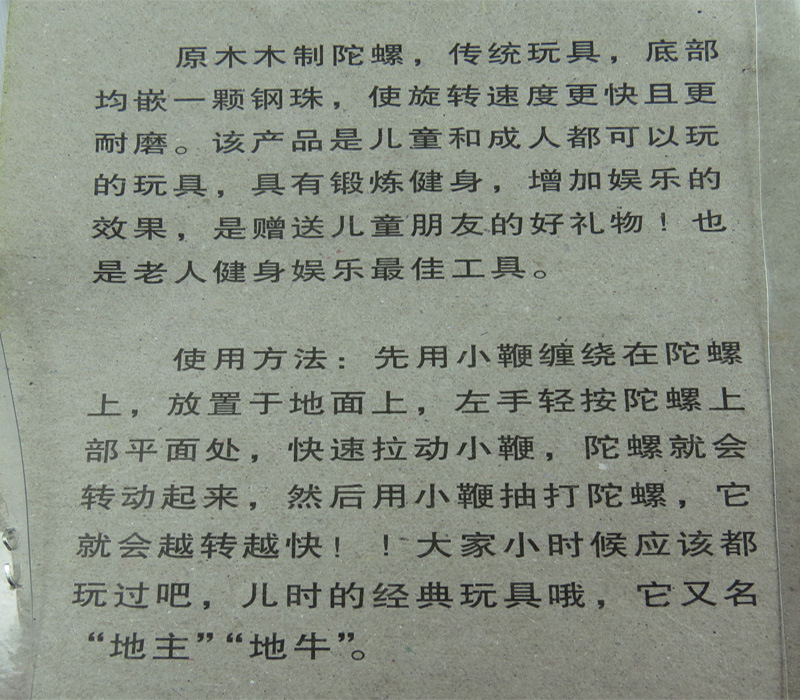 原木木制陀螺，传统玩具，底部
均嵌一颗钢珠，使旋转速度更快且更
耐磨。该产品是儿童和成人都可以玩
的玩具，具有锻炼健身，增加娱乐的
效果，是赠送儿童朋友的好礼物！也
是老人健身娱乐最佳工具。
使用方法：先用小鞭缠绕在陀螺
上，放置于地面上，左手轻按陀螺上
部平面处，快速拉动小鞭，陀螺就会
转动起来，然后用小鞭抽打陀螺，它
就会越转越快！！大家小时候应该都
玩过吧，儿时的经典玩具哦，它又名
“地主”“地牛”。